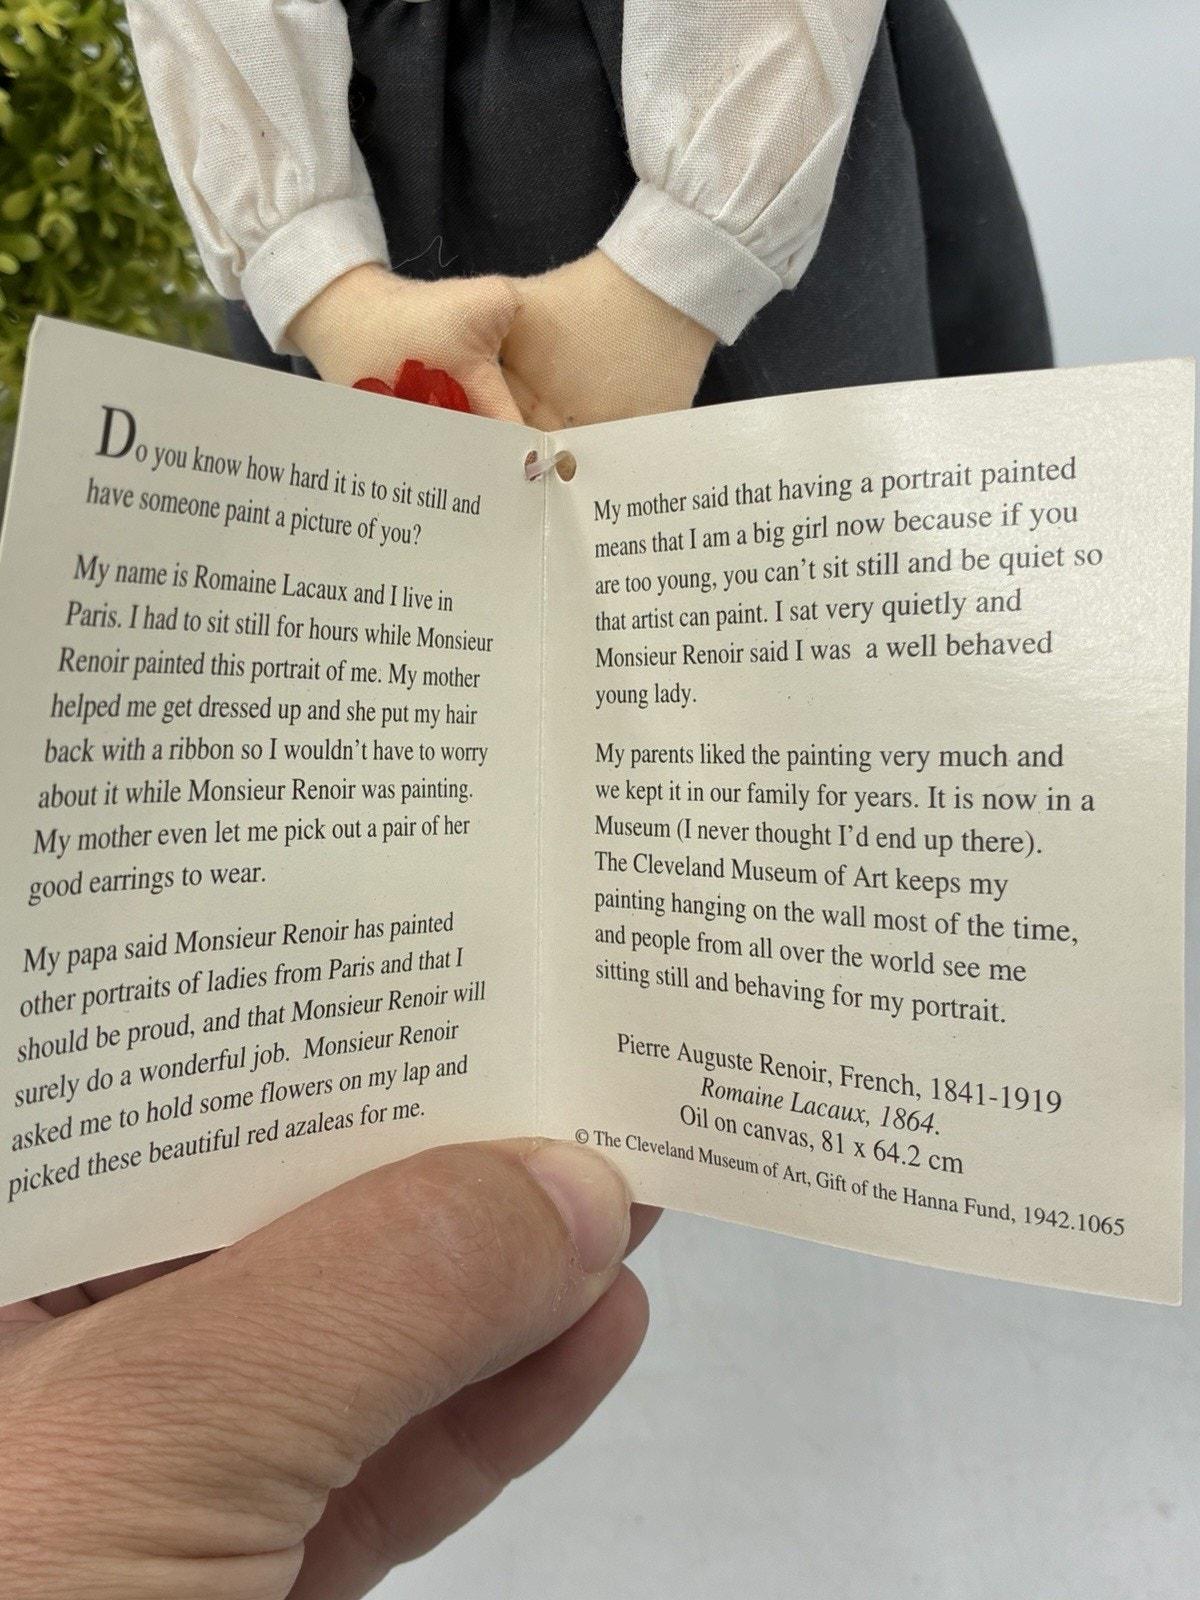 Do you know how hard it is to sit still and
have someone paint a picture of you?
My name is Romaine Lacaux and I live in
Paris. I had to sit still for hours while Monsieur
Renoir painted this portrait of me. My mother
helped me get dressed up and she put my hair
back with a ribbon so I wouldn't have to worry
about it while Monsieur Renoir was painting.
My mother even let me pick out a pair of her
good earrings to wear.
My papa said Monsieur Renoir has painted
other portraits of ladies from Paris and that I
should be proud, and that Monsieur Renoir will
surely do a wonderful job. Monsieur Renoir
asked me to hold some flowers on my lap and
picked these beautiful red azaleas for me.
My mother said that having a portrait painted
means that I am a big girl now because if you
are too young, you can't sit still and be quiet so
that artist can paint. I sat very quietly and
Monsieur Renoir said I was a well behaved
young lady.
My parents liked the painting very much and
we kept it in our family for years. It is now in a
Museum (I never thought I'd end up there).
The Cleveland Museum of Art keeps my
painting hanging on the wall most of the time,
and people from all over the world see me
sitting still and behaving for my portrait.
Pierre Auguste Renoir, French, 1841-1919
Romaine Lacaux, 1864.
Oil on canvas, 81 x 64.2 cm
© The Cleveland Museum of Art, Gift of the Hanna Fund, 1942.1065